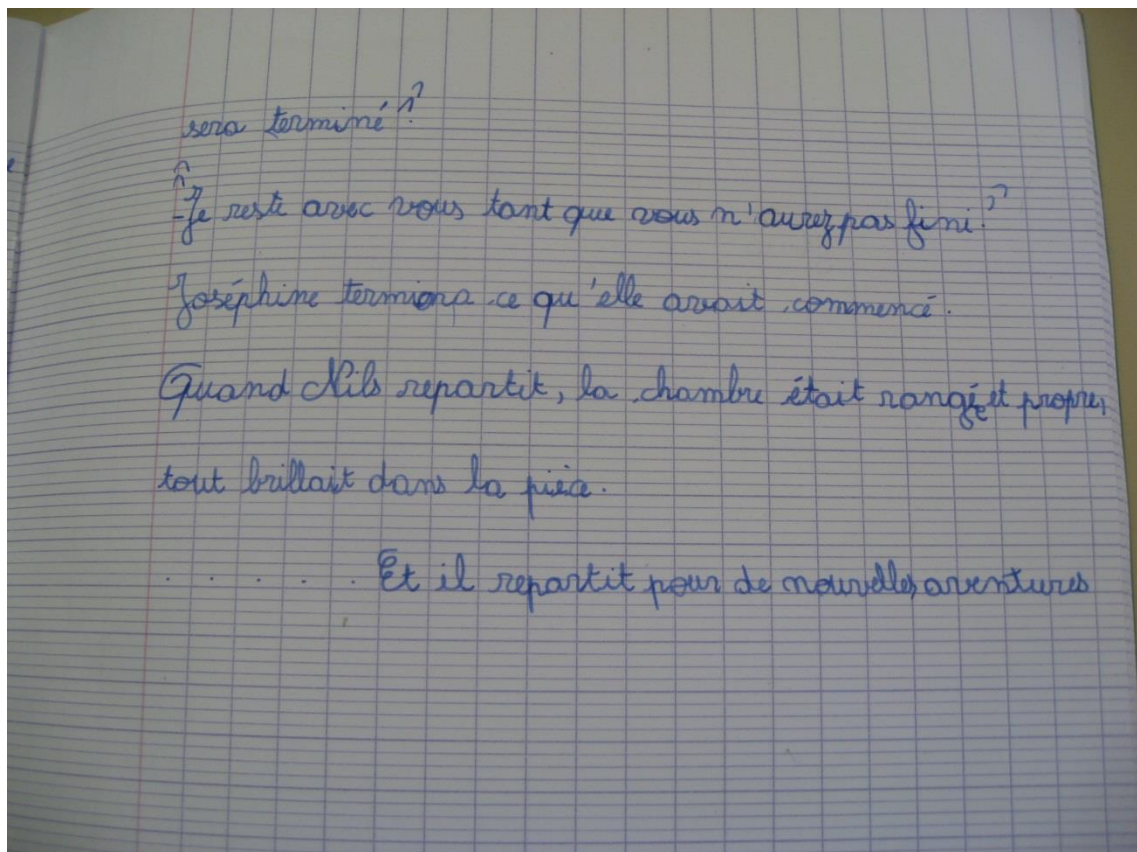 sera terminé ??
-Je reste avec vous tant que vous n'aurez pas fini ?
Joséphine termiona ce qu'elle avait commencé.
Quand Nils repartit, la chambre était rangée et propre,
tout brillait dans la pièce.
..... Et il repartit pour de nouvelles aventures